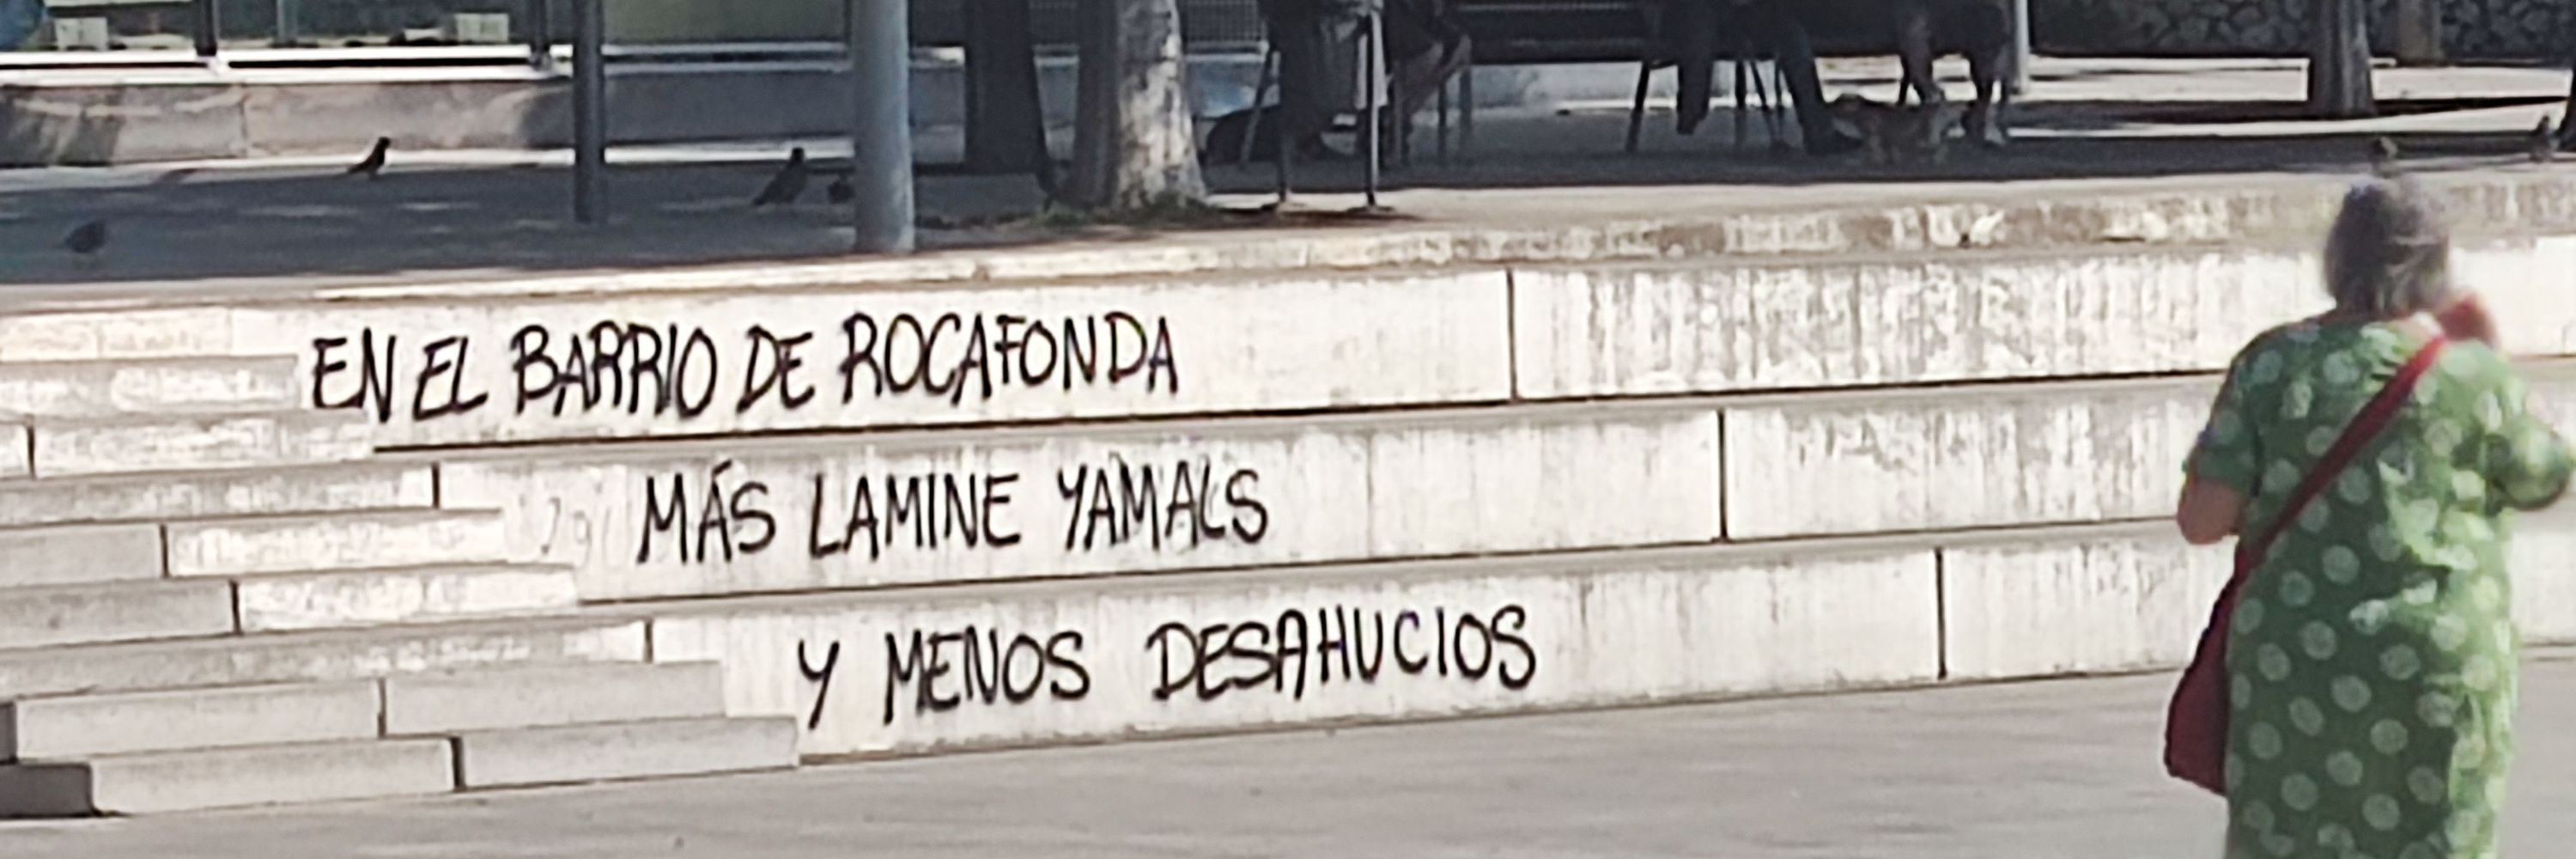 EN EL BARRIO DE ROCAFONDA
MÁS LAMINE YAMALS
Y MENOS DESAHUCIOS